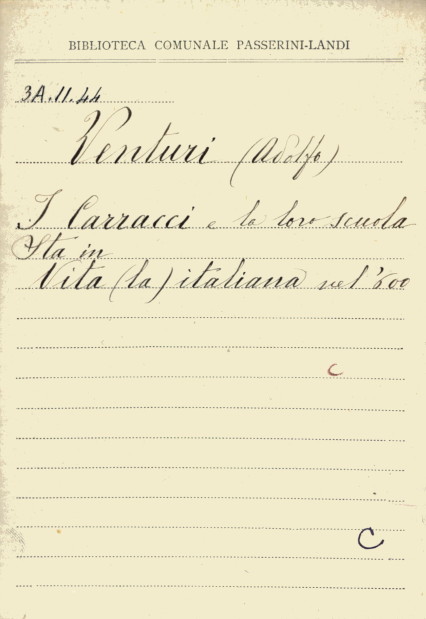 BIBLIOTECA COMUNALE PASSERINI-LANDI
3A.11.44
Venturi (Adolfo)
I Carracci e la loro scuola
Sta in
Vita (la) italiana nel '600
C
C